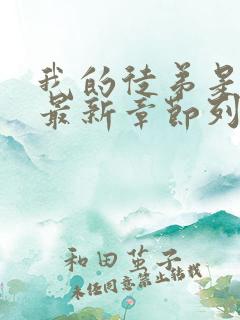 我的徒弟是
最新章节列
和田茧子
未经同意禁止转载